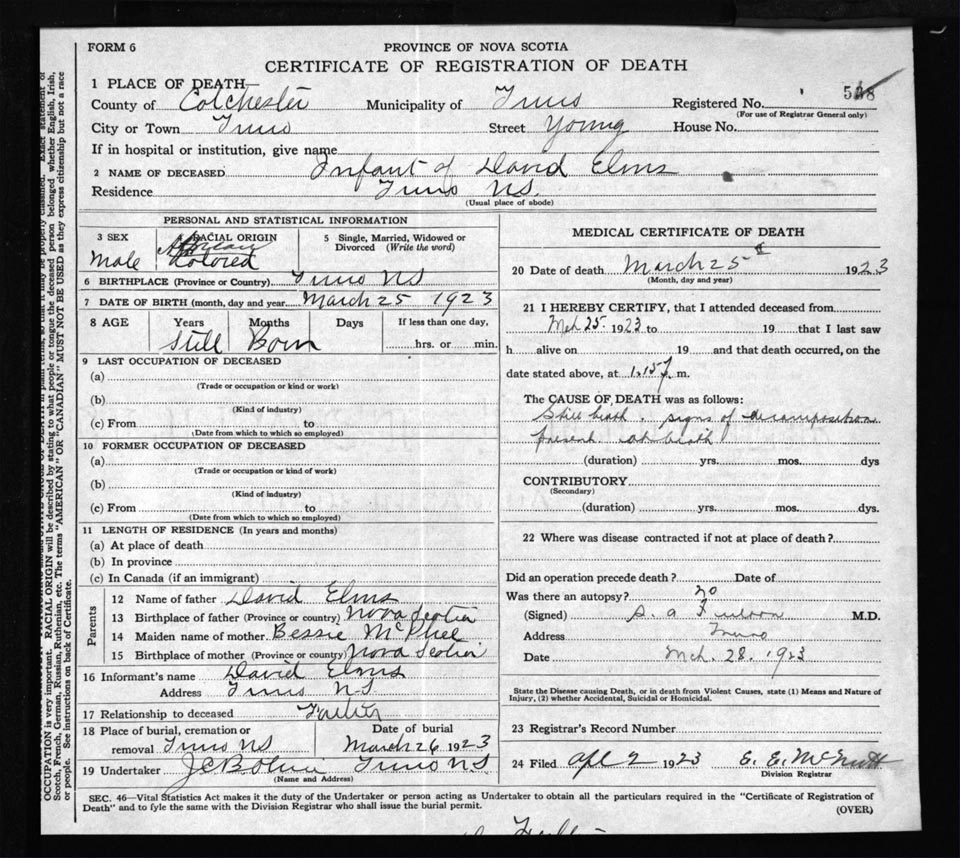 FORM 6
PROVINCE OF NOVA SCOTIA
CERTIFICATE OF REGISTRATION OF DEATH
1 PLACE OF DEATH—
County of Colchester Municipality of Truro Registered No.
(For use of Registrar General only)
City or Town Truro Street Young House No.
If in hospital or institution, give name
2 NAME OF DECEASED Infant of David Elms
Residence Truro N.S.
(Usual place of abode)
PERSONAL AND STATISTICAL INFORMATION
3 SEX Male
RACIAL ORIGIN African Colored
5 Single, Married, Widowed or Divorced (Write the word)
6 BIRTHPLACE (Province or Country) Truro NS
7 DATE OF BIRTH (month, day and year) March 25 1923
8 AGE Years Months Days If less than one day,
Still Born hrs. or min.
9 LAST OCCUPATION OF DECEASED
(a)
(Trade or occupation or kind or work)
(b)
(Kind of industry)
(c) From to
(Date from which to which so employed)
10 FORMER OCCUPATION OF DECEASED
(a)
(Trade or occupation or kind or work)
(b)
(Kind of industry)
(c) From to
(Date from which to which so employed)
11 LENGTH OF RESIDENCE (In years and months)
(a) At place of death
(b) In province
(c) In Canada (if an immigrant)
Parents
12 Name of father David Elms
13 Birthplace of father (Province or country) Nova Scotia
14 Maiden name of mother Bessie McPhee
15 Birthplace of mother (Province or country) Nova Scotia
16 Informant's name David Elms
Address Truro NS
17 Relationship to deceased Father
18 Place of burial, cremation or removal Truro NS
Date of burial March 26 1923
19 Undertaker Truro NS
(Name and Address)
MEDICAL CERTIFICATE OF DEATH
20 Date of death March 25 1923
(Month, day and year)
21 I HEREBY CERTIFY, that I attended deceased from
Mch 25. 1923 to 19 that I last saw
h alive on 19 and that death occurred, on the
date stated above, at 1.15 m.
The CAUSE OF DEATH was as follows:
Still birth. signs of decomposition
present at birth
(duration) yrs. mos. dys
CONTRIBUTORY
(Secondary)
(duration) yrs. mos. dys.
22 Where was disease contracted if not at place of death?
Did an operation precede death? Date of
Was there an autopsy? no
(Signed) S. A. M.D.
Address Truro
Date Mch. 28. 1923
State the Disease causing Death, or in death from Violent Causes, state (1) Means and Nature of
Injury, (2) whether Accidental, Suicidal or Homicidal.
23 Registrar's Record Number
24 Filed Apl 2 1923 E. E. McNutt
Division Registrar
SEC. 46—Vital Statistics Act makes it the duty of the Undertaker or person acting as Undertaker to obtain all the particulars required in the "Certificate of Registration of
Death" and to fyle the same with the Division Registrar who shall issue the burial permit.
(OVER)
OCCUPATION is very important. RACIAL ORIGIN will be described by stating to what people or tongue the deceased person belonged whether English, Irish,
Scotch, French, German, Russian, Ruthenian, etc. The terms "AMERICAN" OR "CANADIAN" MUST NOT BE USED as they express citizenship but not a race
or people. See instructions on back of Certificate.